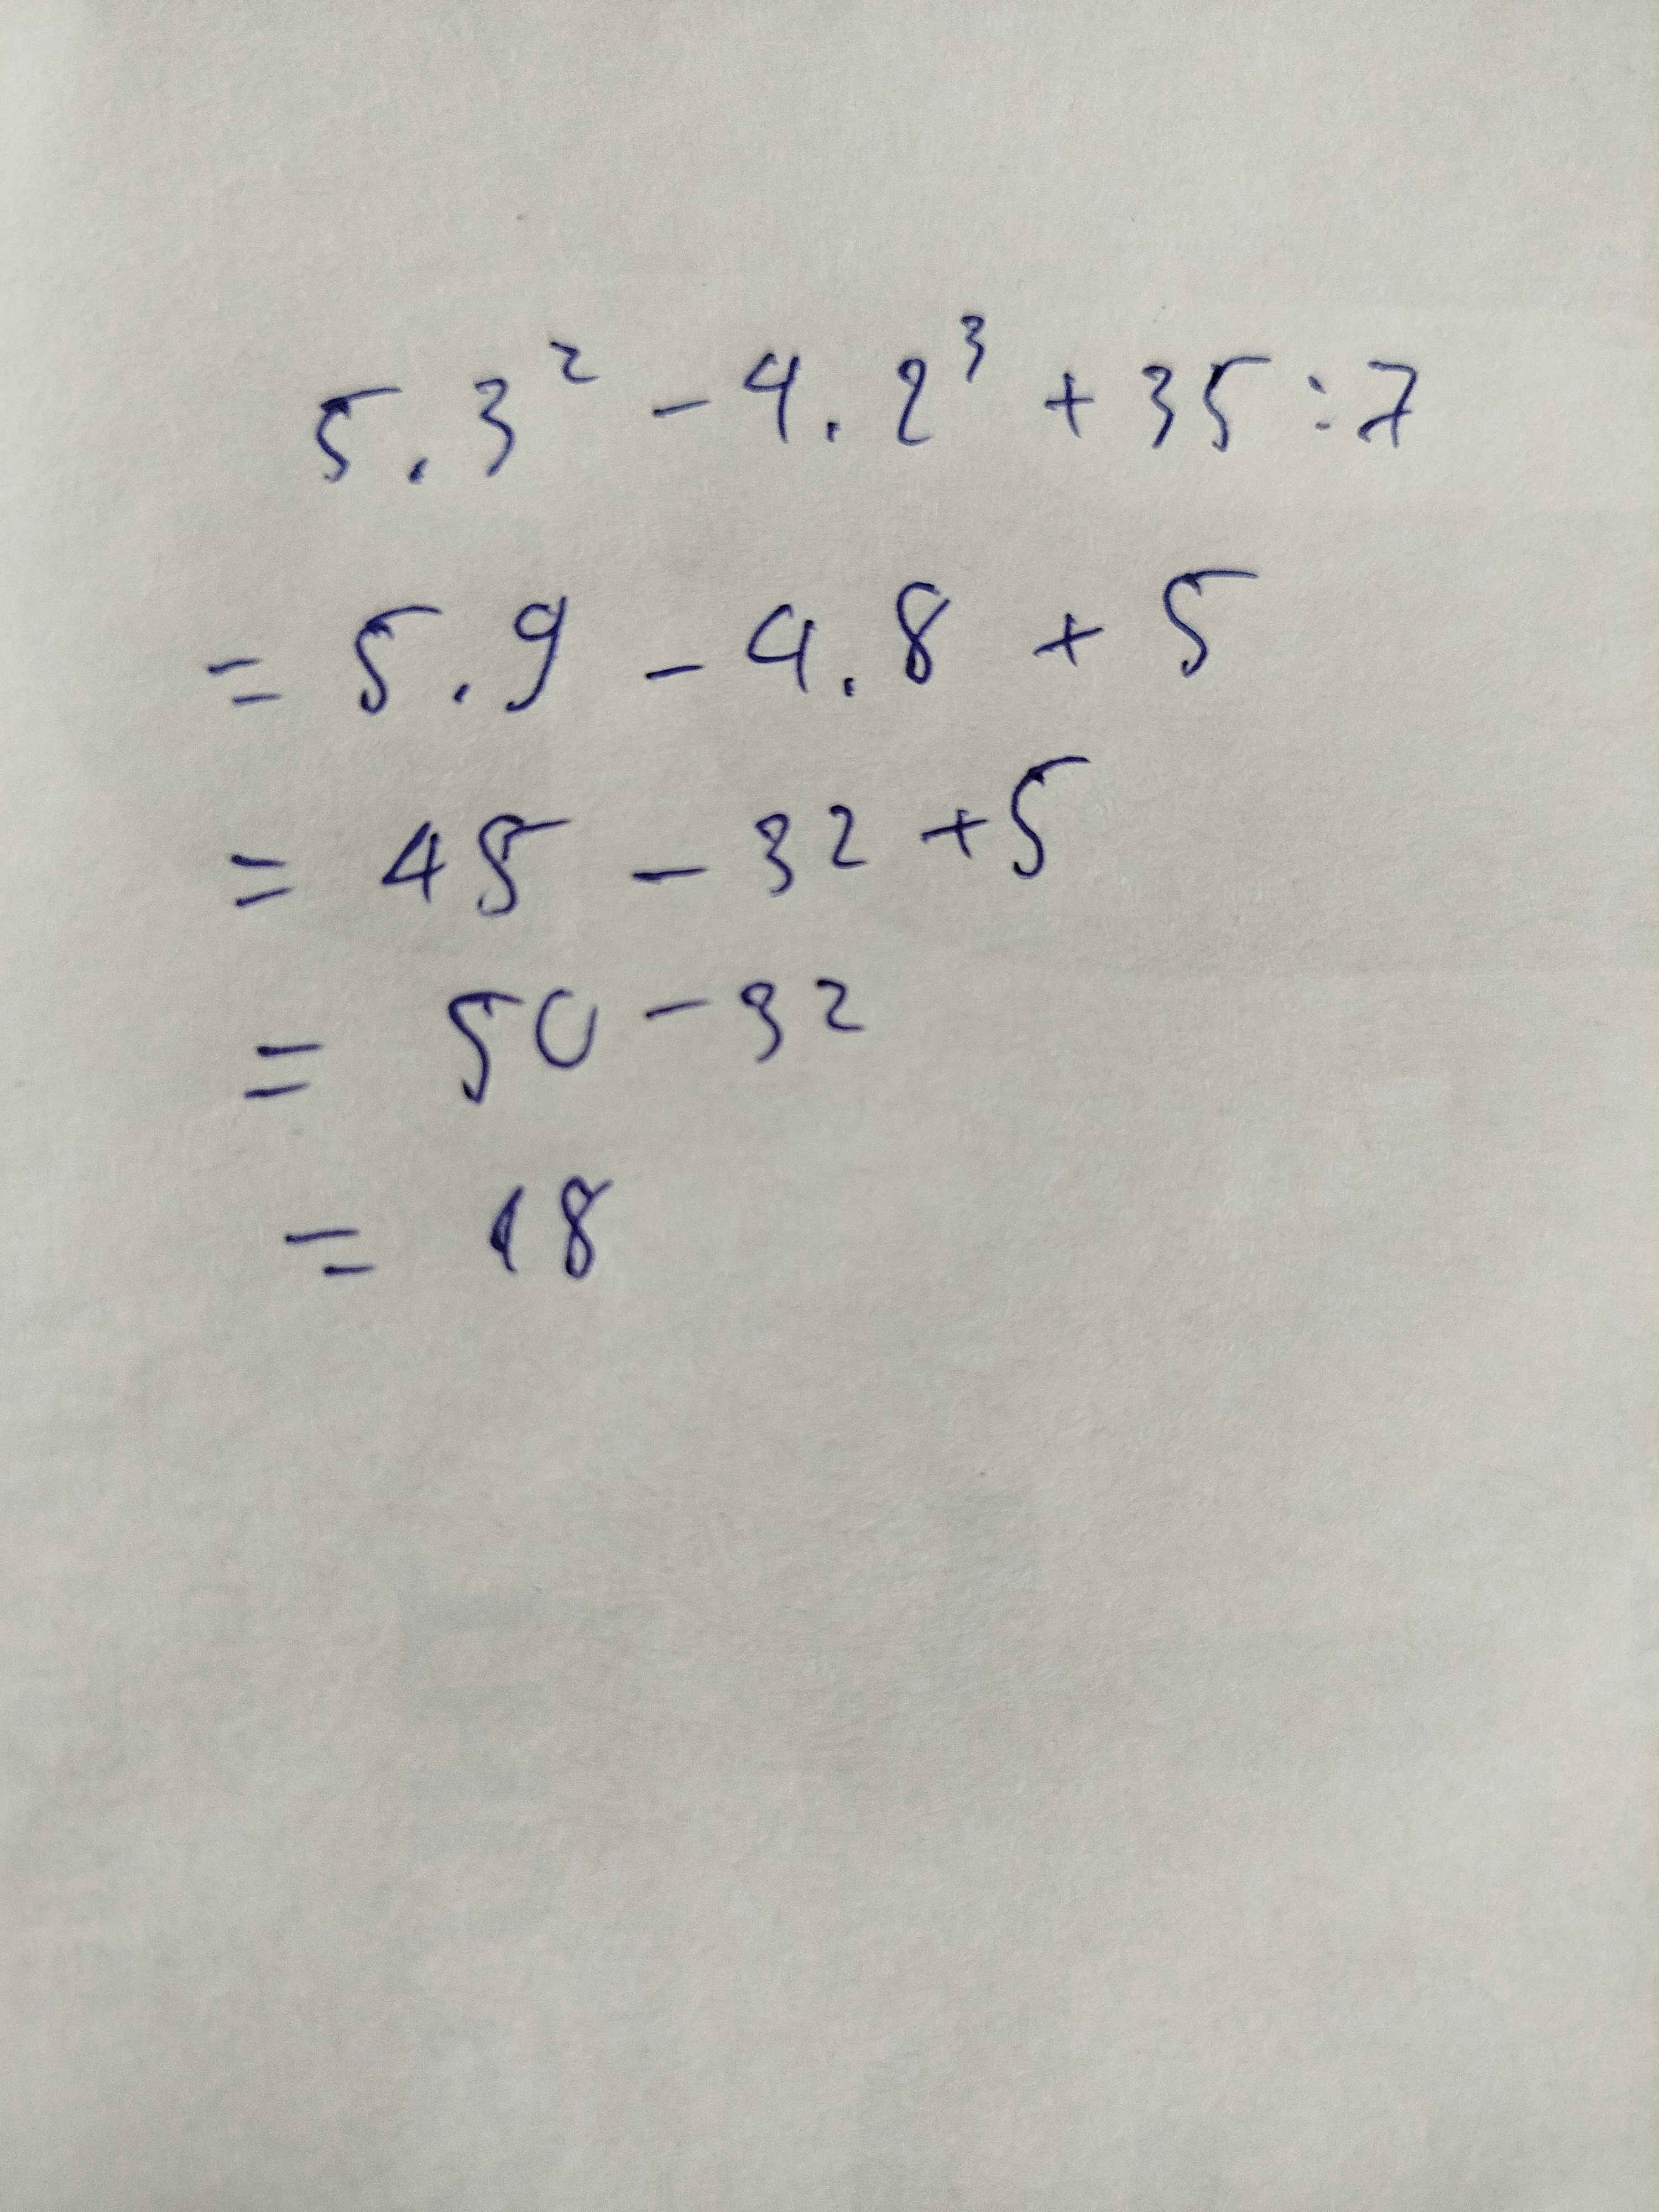 5.3² - 4.2³ + 35:7
= 5.9 - 4.8 + 5
= 45 - 32 + 5
= 50 - 32
= 18